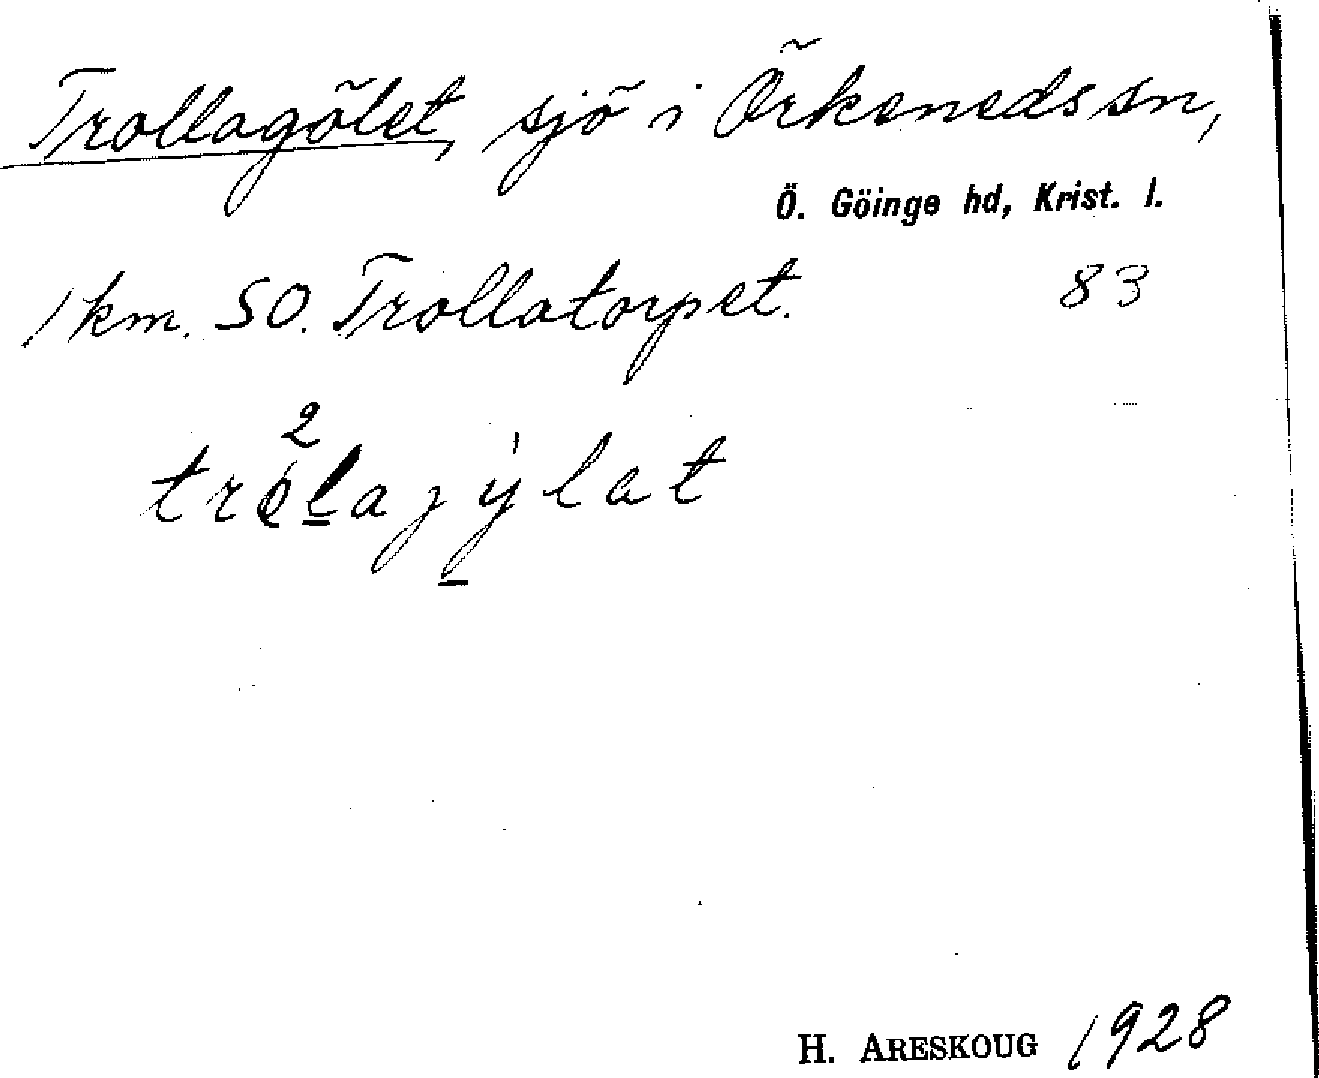 Trollagölet, sjö i Örkenedssn,
Ö. Göinge hd, Krist. l.
1 km. SO. Trollatorpet. 83
H. ARESKOUG 1928